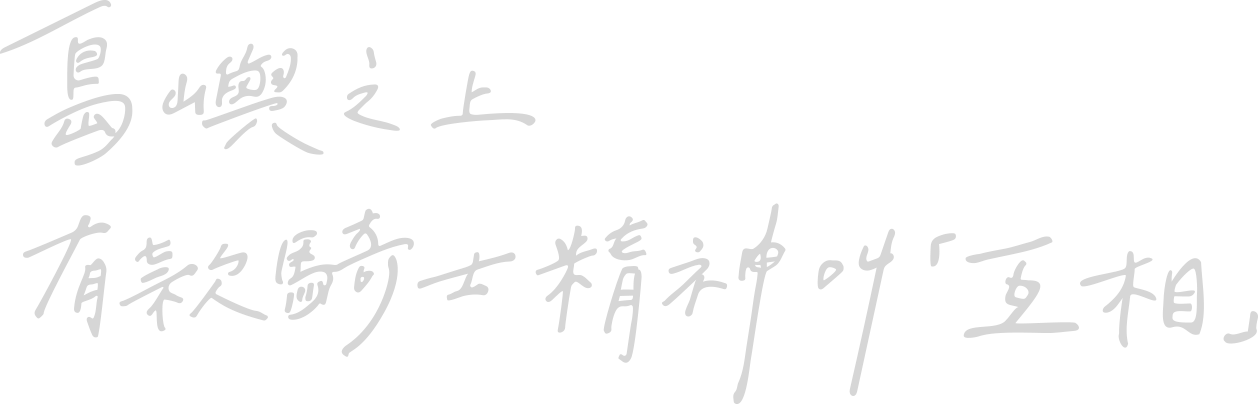 島嶼之上
有款騎士精神叫「互相」